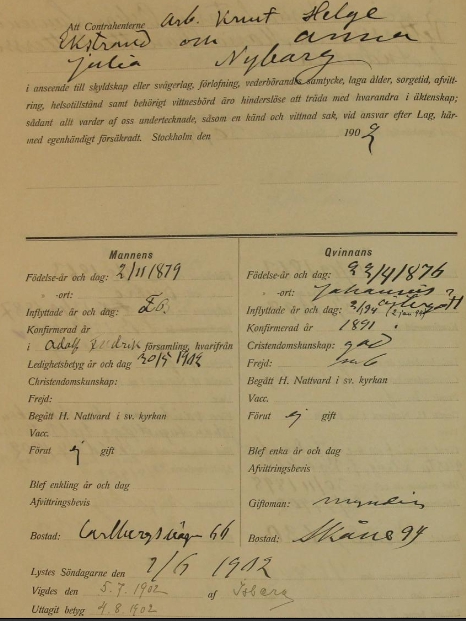 Att Contrahenterne Arb. Knut Helge
Ekstrand och Anna
Julia Nyberg
i anseende till skyldskap eller svågerlag, förlofning, vederbörandes samtycke, laga ålder, sorgetid, afvitt-
ring, helsotillstånd samt behörigt vittnesbörd äro hinderslöse att träda med hvarandra i äktenskap;
sådant allt varder af oss undertecknade, såsom en känd och vittnad sak, vid ansvar efter Lag, här-
med egenhändigt försäkradt. Stockholm den 190 2
Mannens
Födelse-år och dag: 2/11 1879
-ort:
Inflyttade år och dag:
Konfirmerad år
i Adolf Fredrik församling, hvarifrån
Ledighetsbetyg år och dag 20/5 1902
Christendomskunskap:
Frejd:
Begått H. Nattvard i sv. kyrkan
Vacc.
Förut ej gift
Blef enkling år och dag
Afvittringsbevis
Bostad: Carlbergsvägen 66
Qvinnans
Födelse-år och dag: 23/4 1876
-ort: Johannis
Inflyttade år och dag:
Konfirmerad år 1891
Cristendomskunskap: god
Frejd:
Begått H. Nattvard i sv. kyrkan
Vacc.
Förut ej gift
Blef enka år och dag
Afvittringsbevis
Giftoman: myndig
Bostad: Skåne 94
Lystes Söndagarne den 1/6 1902
Vigdes den 5.7.1902 af Isberg
Uttagit betyg 4.8.1902